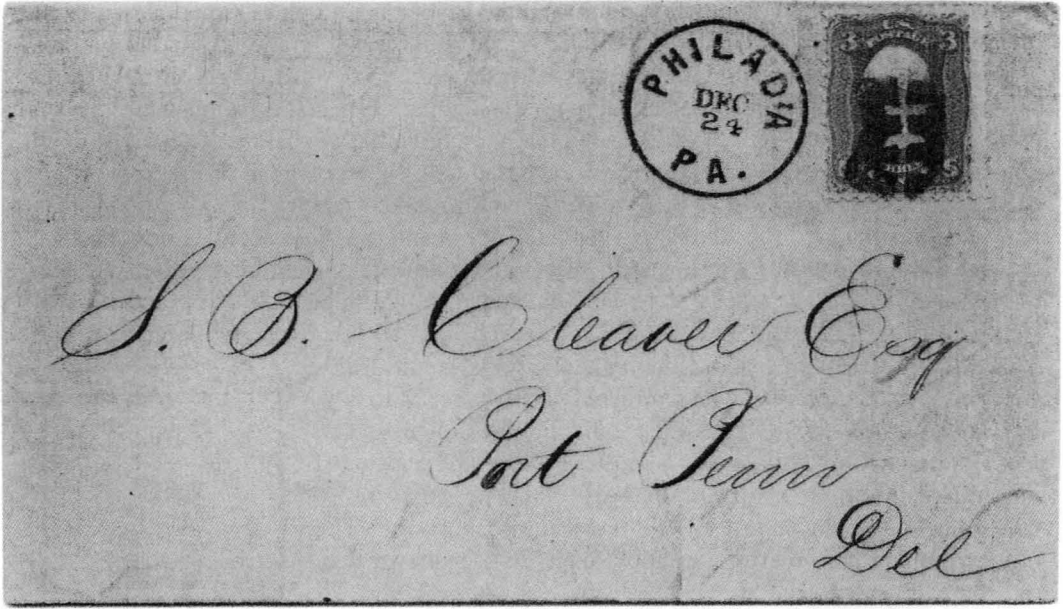 PHILAD'A
DEC
24
PA.
U.S.
POSTAGE
3 3
S. B. Cleaver Esq
Port Penn
Del